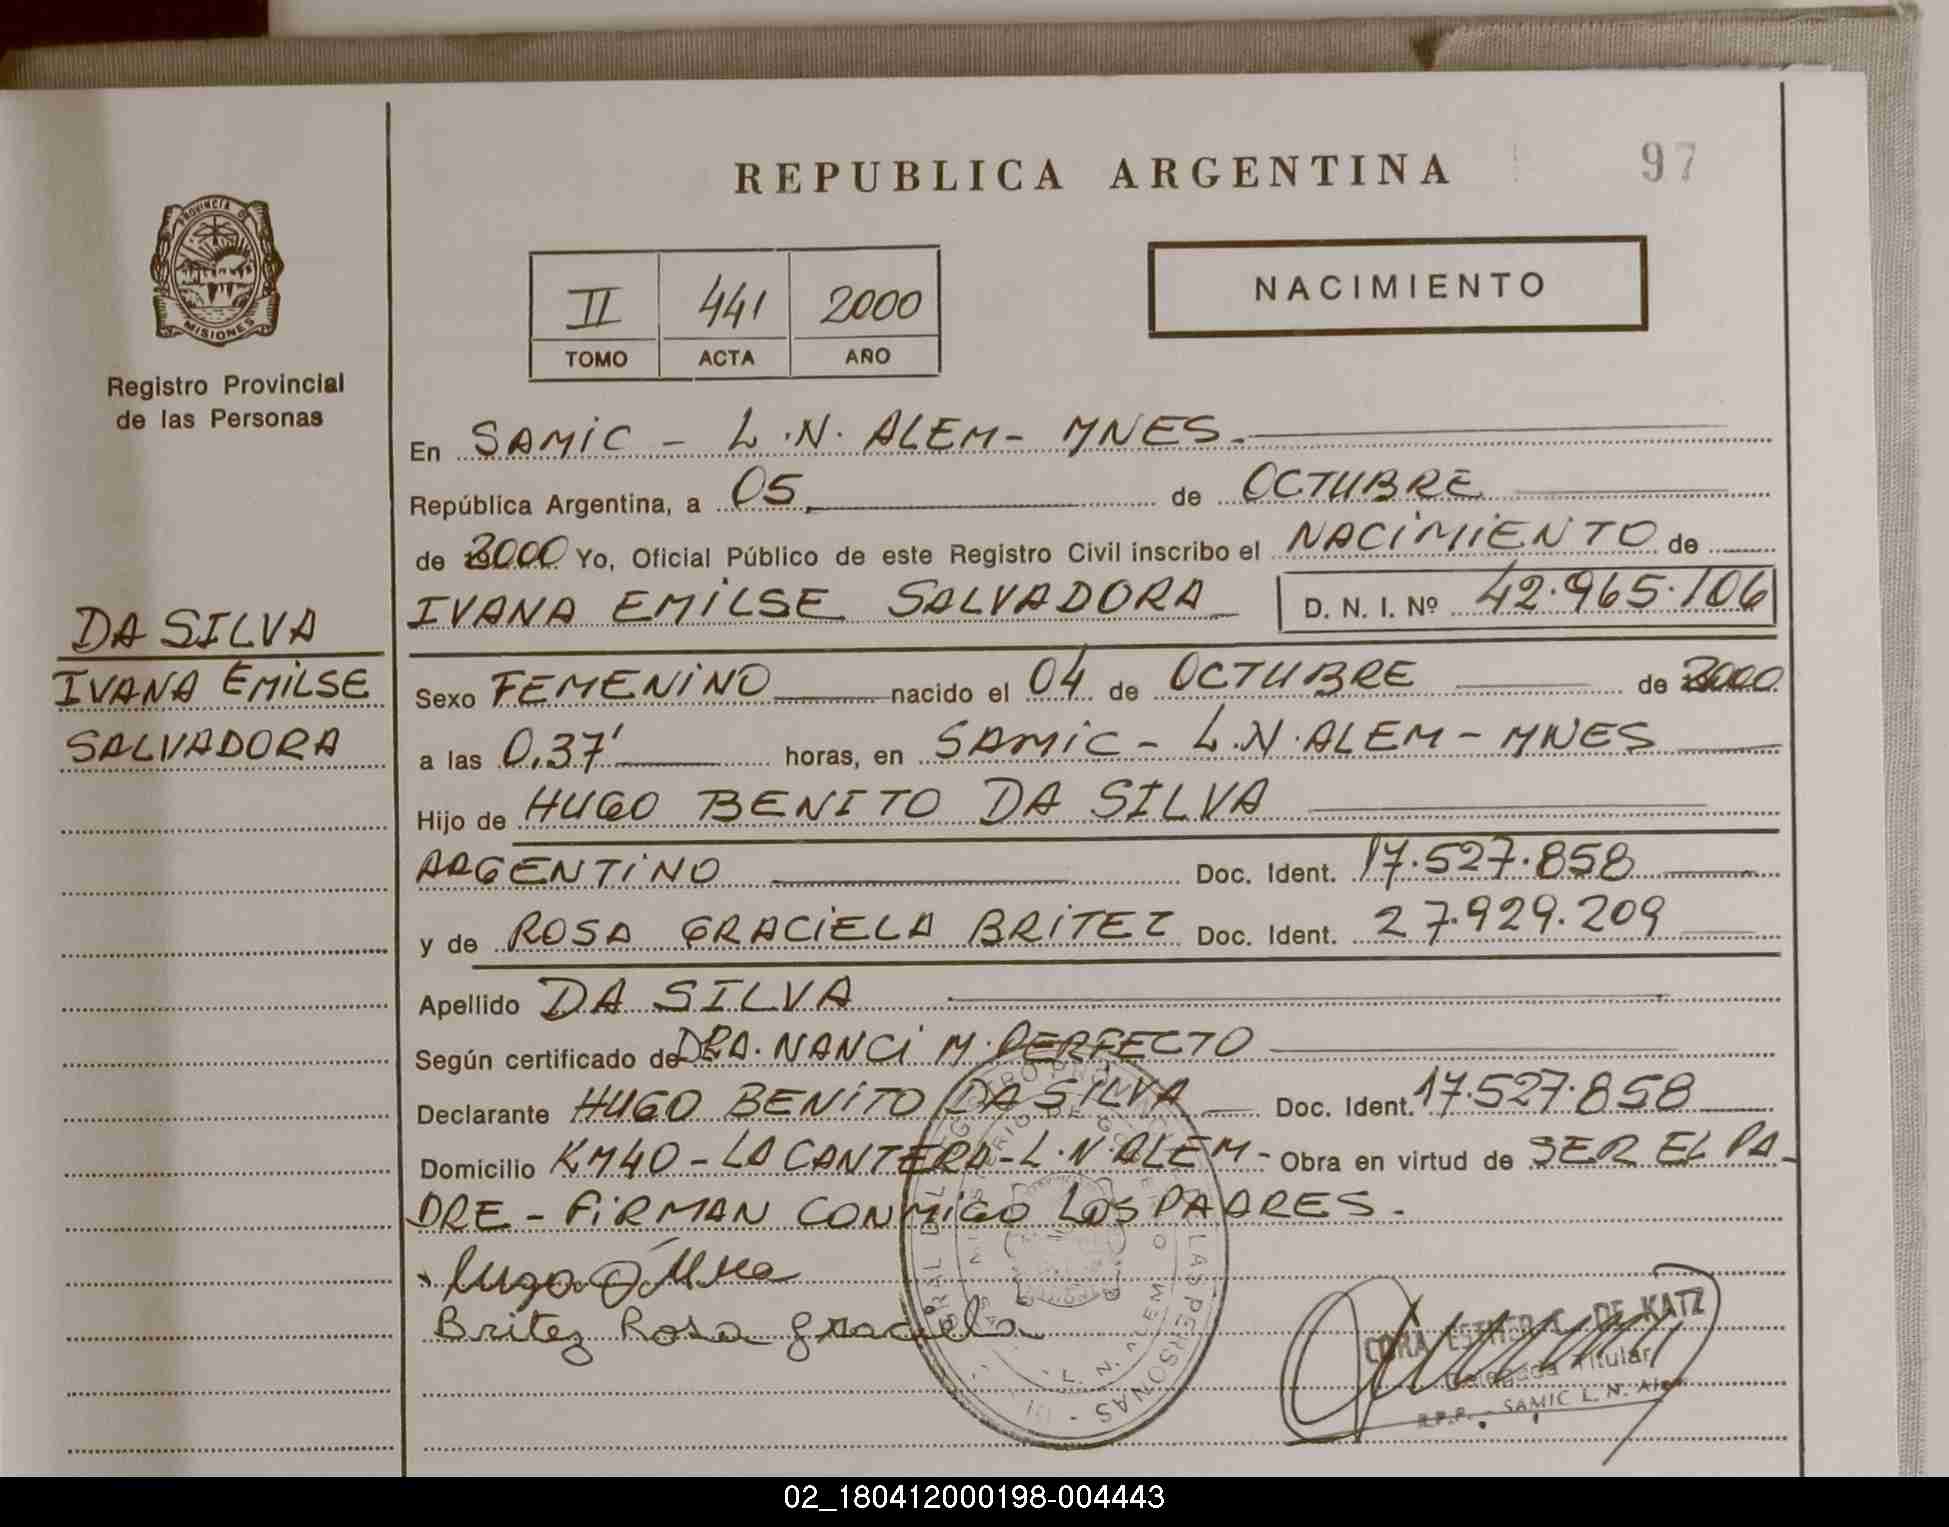 REPUBLICA ARGENTINA
97
PROVINCIA DE
MISIONES
Registro Provincial
de las Personas
II 441 2000
TOMO ACTA AÑO
NACIMIENTO
En SAMIC - L.N. ALEM - MNES.
República Argentina, a 05 de OCTUBRE
de 2000 Yo, Oficial Público de este Registro Civil inscribo el NACIMIENTO de
IVANA EMILSE SALVADORA D. N. I. Nº 42.965.106
DA SILVA
IVANA EMILSE
SALVADORA
Sexo FEMENINO nacido el 04 de OCTUBRE de 2000
a las 0,37' horas, en SAMIC - L.N. ALEM - MNES
Hijo de HUGO BENITO DA SILVA
ARGENTINO Doc. Ident. 17.527.858
y de ROSA GRACIELA BRITEZ Doc. Ident. 27.929.209
Apellido DA SILVA
Según certificado de DRA. NANCI M. PERFECTO
Declarante HUGO BENITO DA SILVA Doc. Ident. 17.527.858
Domicilio KM40 - LA CANTERA - L.N. ALEM - Obra en virtud de SER EL PA-
DRE - FIRMAN CONMIGO LOS PADRES.
Britez Rosa Graciela
LAS PERSONAS
L. N. ALEM
CORA ESTHER C. DE KATZ
Delegada Titular
R.P.P. - SAMIC L. N. Alem
02_180412000198-004443